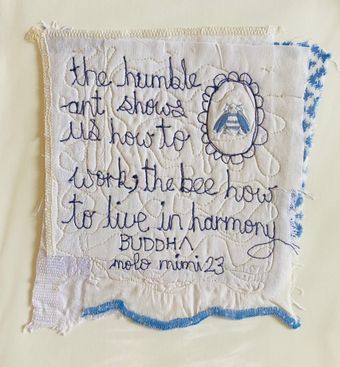 the humble
ant shows
us how to
work, the bee how
to live in harmony
BUDDHA
molo mimi 23